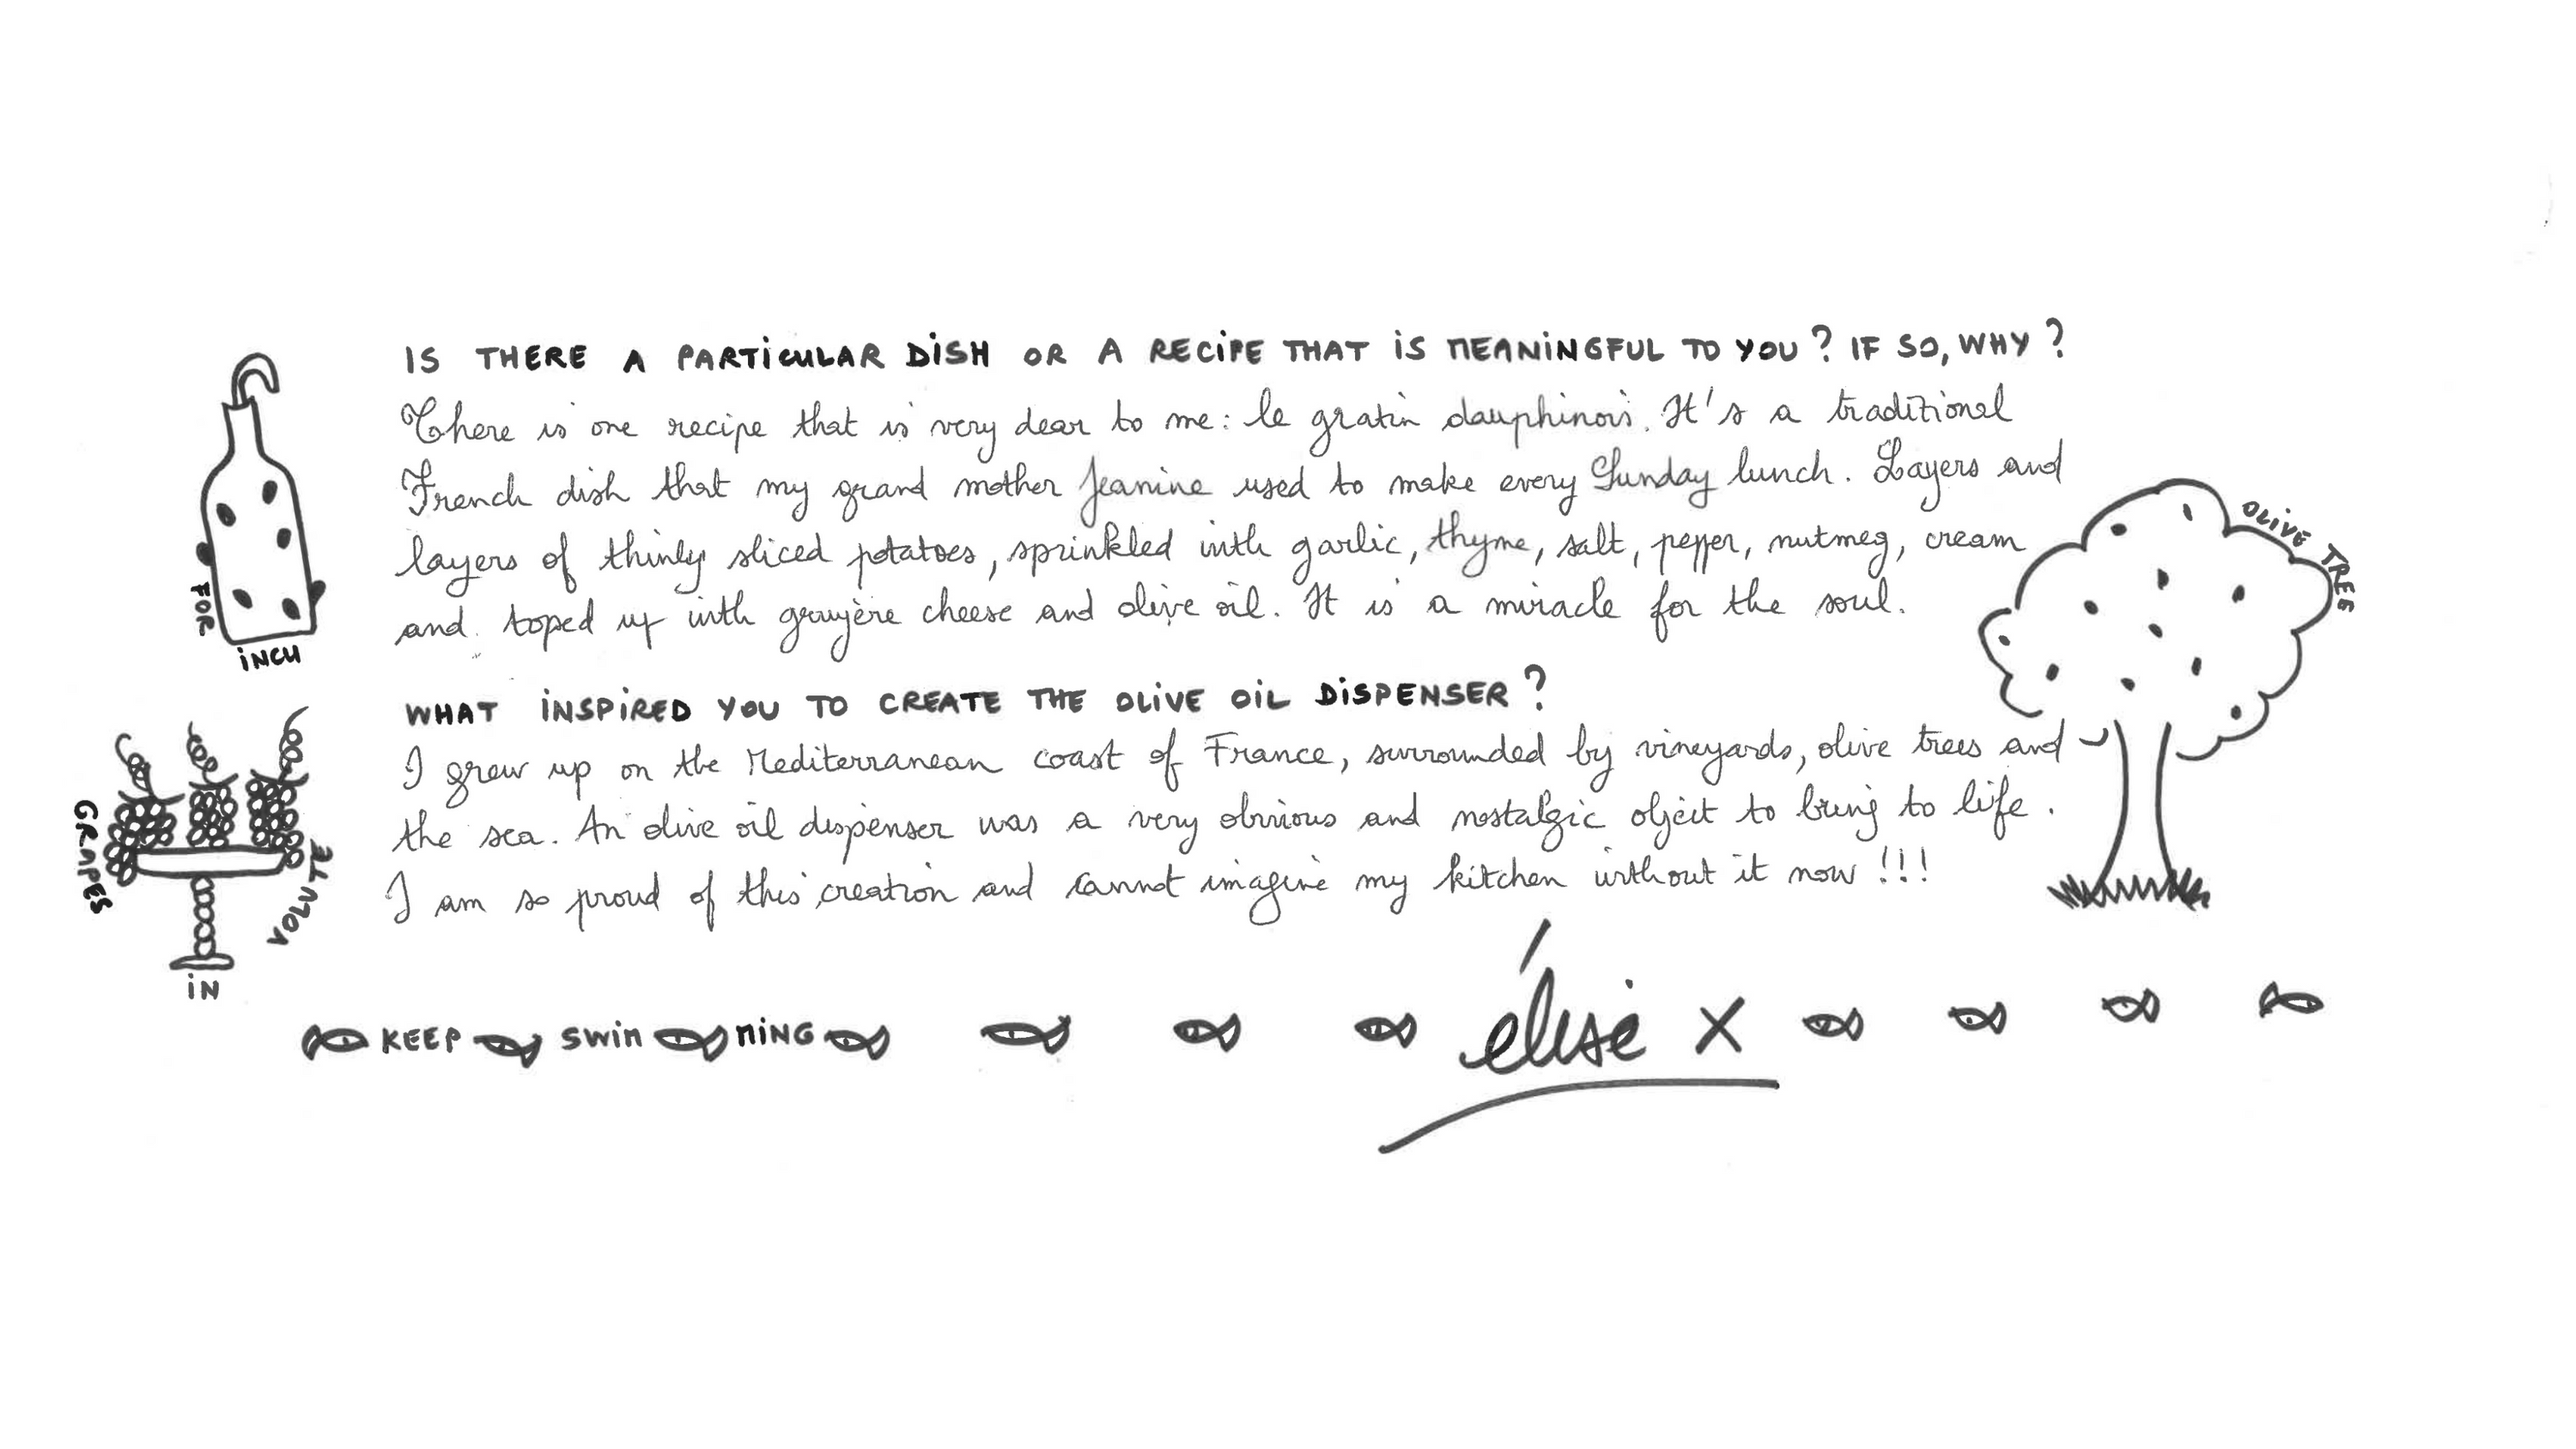 IS THERE A PARTICULAR DISH OR A RECIPE THAT IS MEANINGFUL TO YOU? IF SO, WHY?
There is one recipe that is very dear to me: le gratin dauphinois. It's a traditional
French dish that my grand mother Jeanine used to make every Sunday lunch. Layers and
layers of thinly sliced potatoes, sprinkled with garlic, thyme, salt, pepper, nutmeg, cream
and toped up with gruyère cheese and olive oil. It is a miracle for the soul.
FOR
INCU
OLIVE TREE
WHAT INSPIRED YOU TO CREATE THE OLIVE OIL DISPENSER?
I grew up on the Mediterranean coast of France, surrounded by vineyards, olive trees and
the sea. An olive oil dispenser was a very obvious and nostalgic object to bring to life.
I am so proud of this creation and cannot imagine my kitchen without it now!!!
GRAPES
IN
VOLUTE
KEEP SWIM MING
élise x